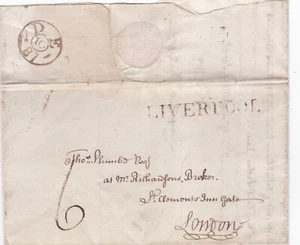 LIVERPOOL
Tho.s Plumbe Esq.r
at Mr. Richardsons, Broker
St. Clements Inn Gate
6
London